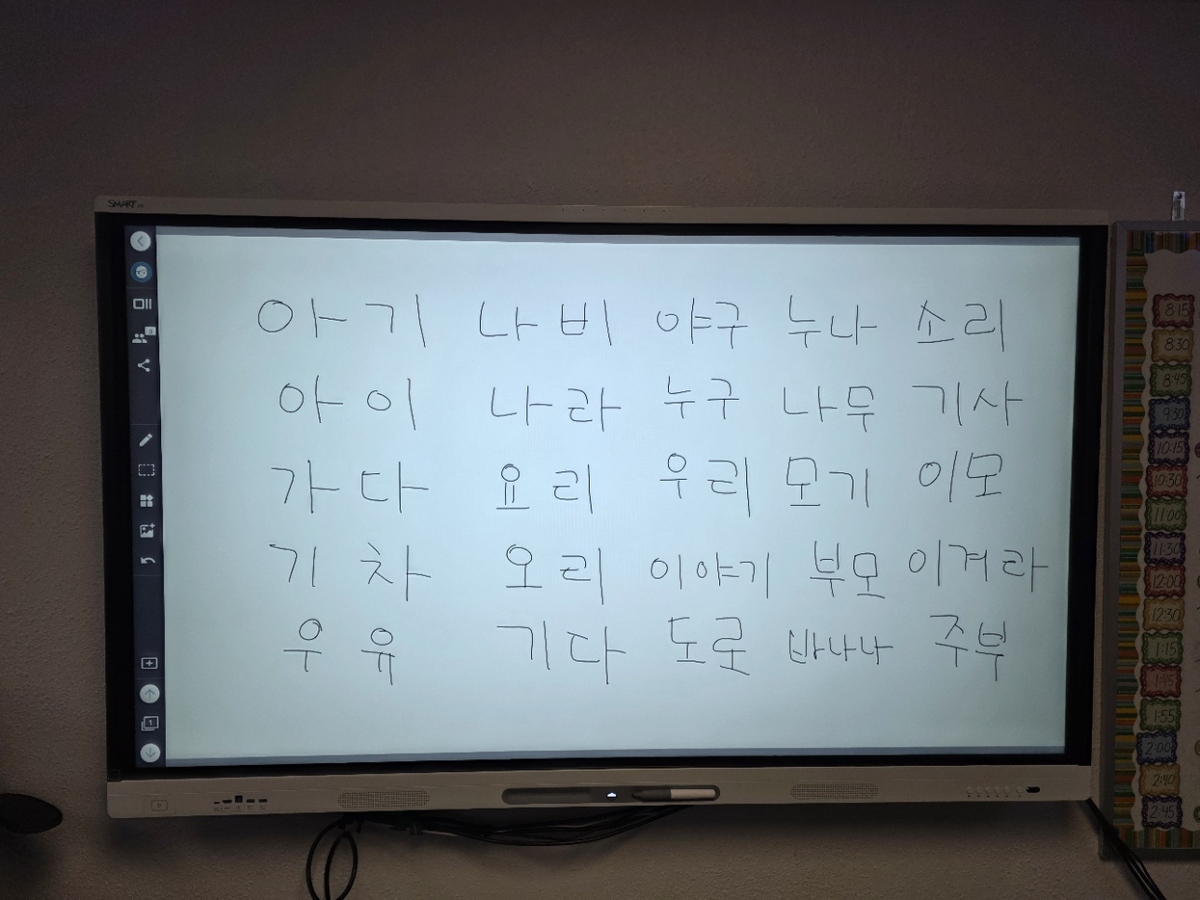 SMART
아기 나비 야구 누나 소리
아이 나라 누구 나무 기사
가다 요리 우리 모기 이모
기차 오리 이야기 부모 이겨라
우유 기다 도로 바나나 주부
8:15
8:30
8:45
9:30
10:15
10:30
11:00
11:30
12:00
12:30
1:15
1:45
1:55
2:00
2:40
2:45